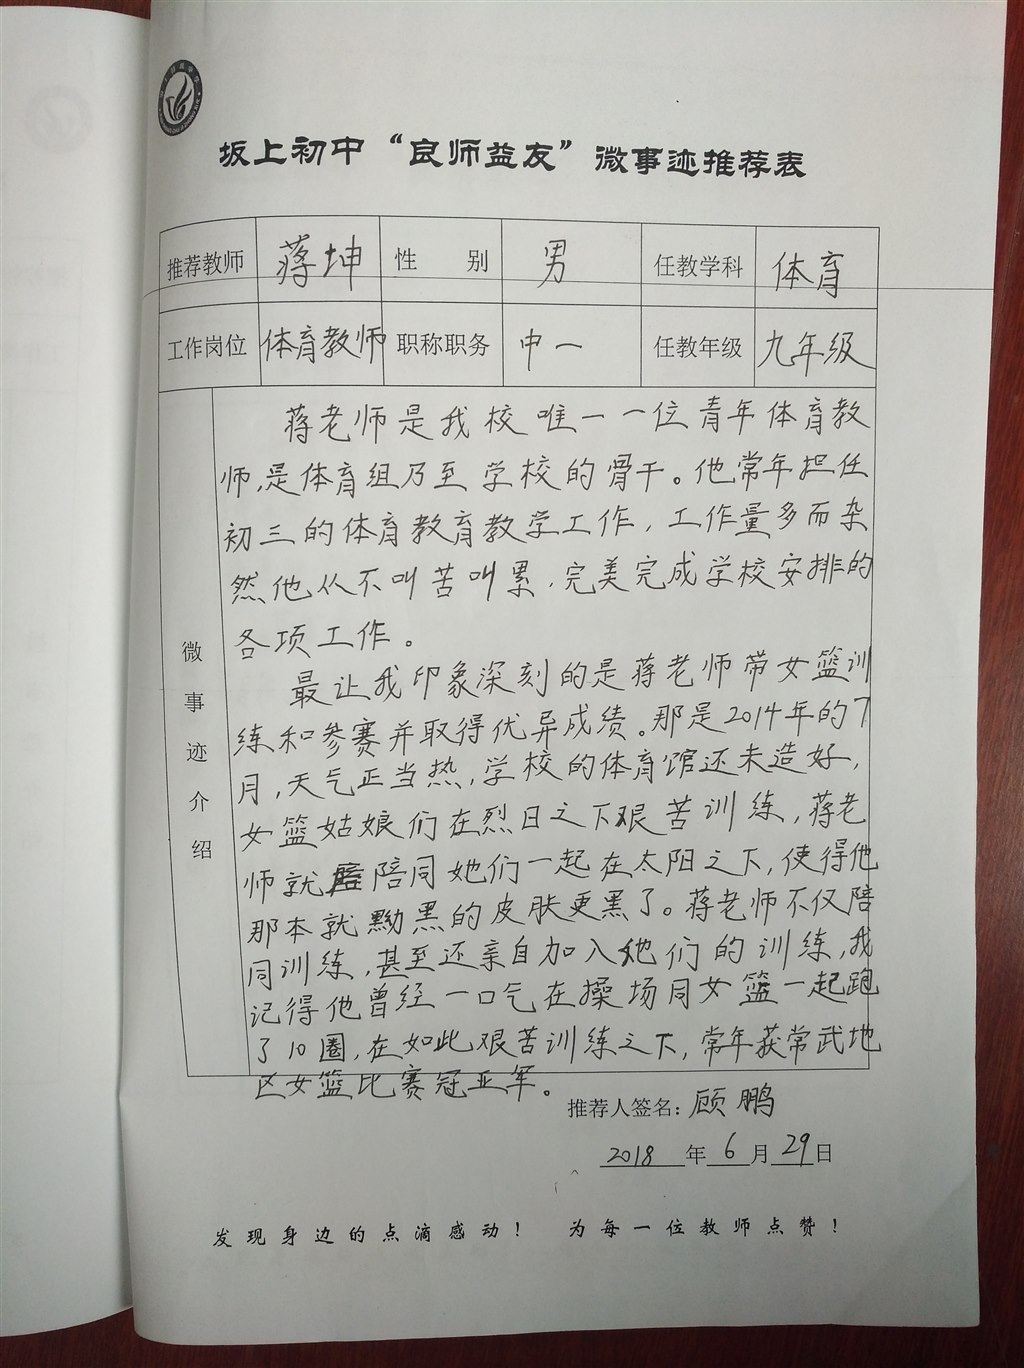 坂上初中“良师益友”微事迹推荐表
推荐教师 蒋坤 性 别 男 任教学科 体育
工作岗位 体育教师 职称职务 中一 任教年级 九年级
微事迹介绍
蒋老师是我校唯一一位青年体育教
师,是体育组乃至学校的骨干。他常年担任
初三的体育教育教学工作,工作量多而杂
然他从不叫苦叫累,完美完成学校安排的
各项工作。
最让我印象深刻的是蒋老师带女篮训
练和参赛并取得优异成绩。那是2014年的7
月,天气正当热,学校的体育馆还未造好,
女篮姑娘们在烈日之下艰苦训练,蒋老
师就陪同她们一起在太阳之下,使得他
那本就黝黑的皮肤更黑了。蒋老师不仅陪
同训练,甚至还亲自加入她们的训练,我
记得他曾经一口气在操场同女篮一起跑
了10圈,在如此艰苦训练之下,常年获常武地
区女篮比赛冠亚军。
推荐人签名:顾鹏
2018年6月29日
发现身边的点滴感动! 为每一位教师点赞!